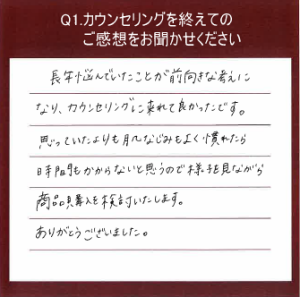 Q1.カウンセリングを終えての
ご感想をお聞かせください
長年悩んでいたことが前向きな考えに
なり、カウンセリングに来れて良かったです。
思っていたよりも肌なじみもよく慣れたら
時間もかからないと思うので様子を見ながら
商品購入を検討いたします。
ありがとうございました。